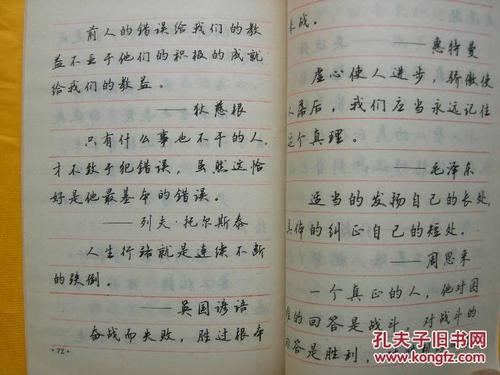 前人的错误给我们的教
益不亚于他们的积极的成就
给我们的教益。
——狄慈根
只有什么事也不干的人,
才不致于犯错误,虽然这恰
好是他最基本的错误。
——列夫·托尔斯泰
人生行路就是连续不断
的跌倒。
——英国谚语
奋战而失败,胜过根本
·72·
未战。
——惠特曼
虚心使人进步,骄傲使
人落后,我们应当永远记住
这个真理。
——毛泽东
适当的发扬自己的长处,
具体的纠正自己的短处。
——周恩来
一个真正的人,他对困
难的回答是战斗,对战斗的
回答是胜利,
孔夫子旧书网
www.kongfz.com